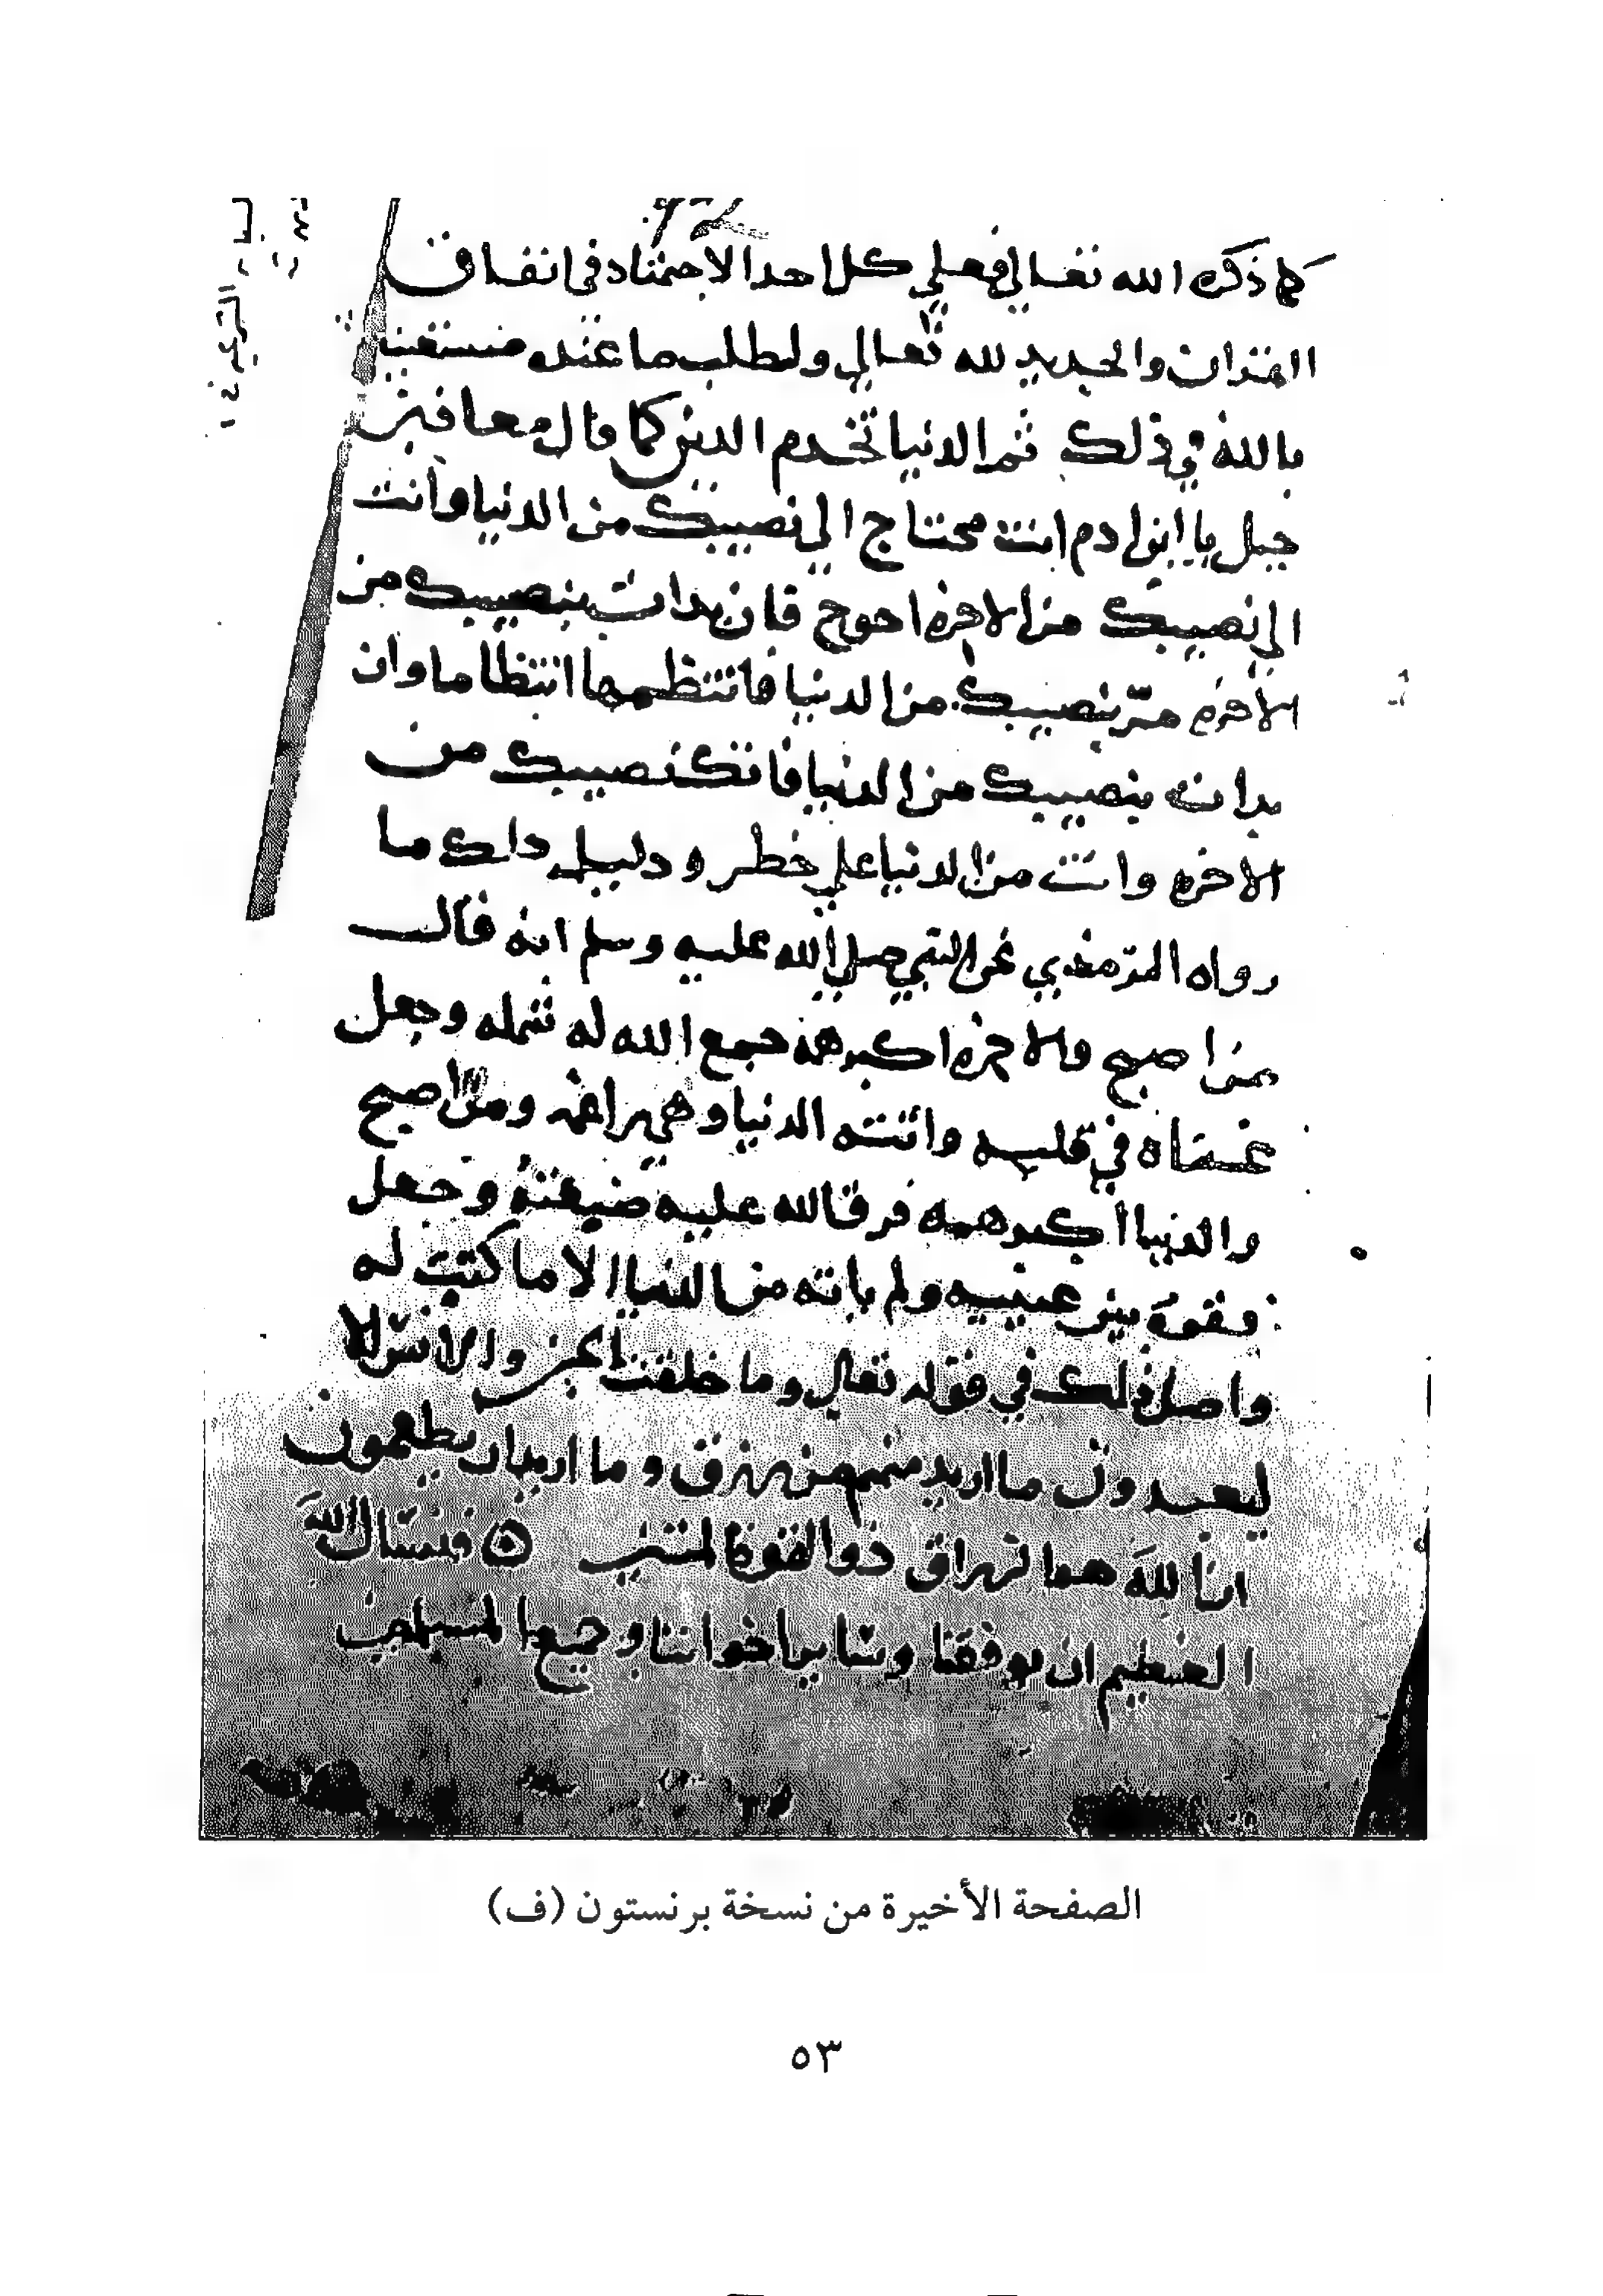 كما ذكره الله تعالى فعلي كل احد الاجتهاد في اتفاق
القران والحديد لله تعالى ولطلب ما عنده مستعينا
بالله في ذلك ثم الدنيا تخدم الدين كما قال معاذ بن
جبل يا ابن ادم انت محتاج الي نصيبك من الدنيا وانت
الي نصيبك من الاخرة احوج فان بدات بنصيبك من
الاخرة مر بنصيبك من الدنيا فانتظمها انتظاما وان
بدات بنصيبك من الدنيا فاتك نصيبك من
الاخره وانت من الدنيا علي خطر ودليل ذلك ما
رواه الترمذي عن النبي صلي الله عليه وسلم انه قال
من اصبح والاخرة اكبر همه جمع الله له شمله وجعل
غناه في قلبه واتته الدنيا وهي راغمه ومن اصبح
والدنيا أكبر همه فرق الله عليه ضيعته وجعل
فقره بين عينيه ولم ياته من الدنيا الا ما كتب له
واصل ذلك في قوله تعالي وما خلقت الجن والانس الا
ليعبدون ما اريد منهم من رزق وما اريد ان يطعمون
ان الله هو الرزاق ذو القوة المتين فنسال الله
العظيم ان يوفقنا وساير اخواننا وجميع المسلمين
الصفحة الأخيرة من نسخة برنستون (ف)
٥٣